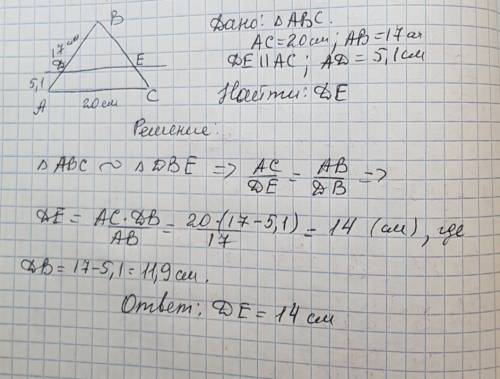 B
17 см
D
E
5,1
A
20 см
C
Дано: △ABC.
AC=20см; AB=17см
DE∥AC; AD=5,1см
Найти: DE
Решение:
△ABC ~ △DBE => AC/DE = AB/DB =>
DE = AC·DB/AB = 20·(17-5,1)/17 = 14 (см), где
DB=17-5,1=11,9см.
Ответ: DE=14 см